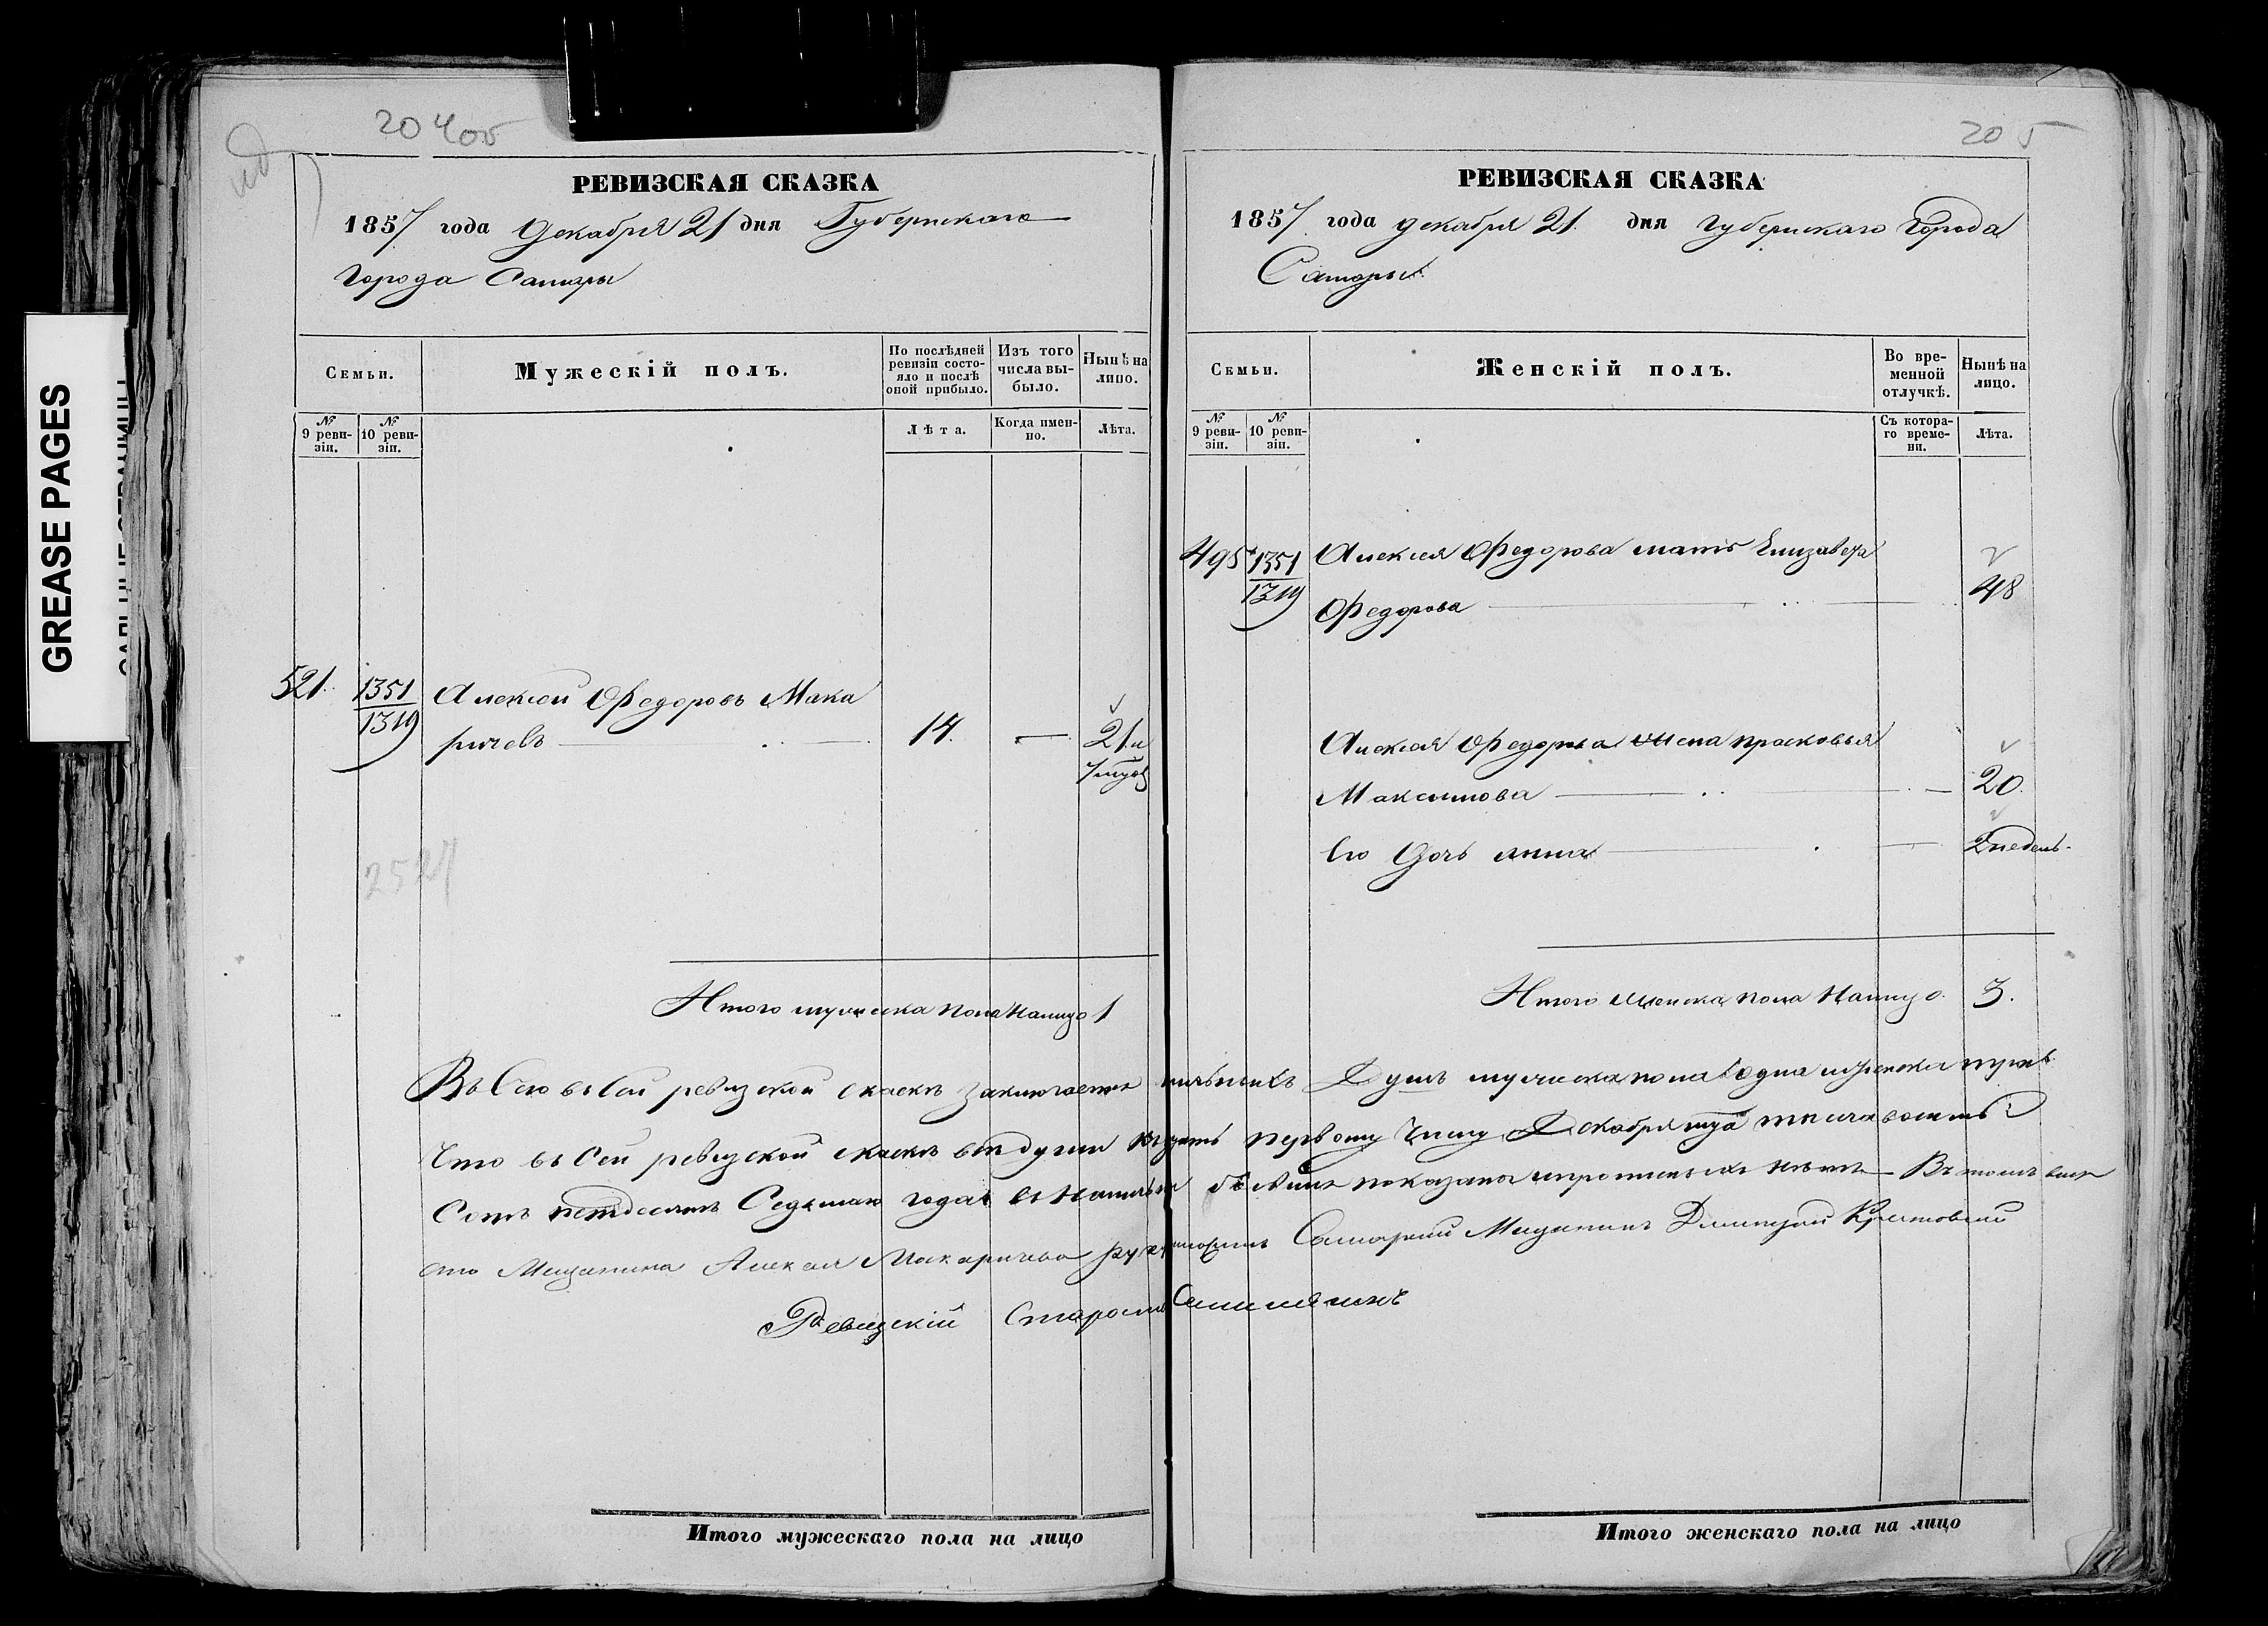 GREASE PAGES
20400
РЕВИЗСКАЯ СКАЗКА
1857 года Декабря 21 дня Губернскаго
Города Самары
Семьи.
Мужескій полъ.
По послѣдней ревизіи состояло и послѣ оной прибыло.
Изъ того числа выбыло.
Нынѣ на лицо.
№ 9 ревизіи.
№ 10 ревизіи.
Лѣта.
Когда именно.
Лѣта.
521. 1351 Алексей Федоровъ Мака
1319 ричевъ 14. — 21 и
2527
Итого мужеска пола налицо 1
Итого мужескаго пола на лицо
205
РЕВИЗСКАЯ СКАЗКА
1857 года декабря 21. дня Губернскаго Города
Самары
Семьи.
Женскій полъ.
Во временной отлучкѣ.
Нынѣ на лицо.
№ 9 ревизіи.
№ 10 ревизіи.
Съ котораго времени.
Лѣта.
495 1351 Алексея Федорова мать Елизавета
1319 Федорова 48
Алексея Федорова жена Прасковья
Максимова 20.
Его Дочь Анна 2 недель.
Итого женска пола налицо. 3.
Въ сей ревизской скаскѣ заключается Душъ мужеска пола одна и женска
Что въ сей ревизской скаскѣ все души первому числу Декабря тысяча восемь
Сотъ петдесятъ Седьмаго года въ показаны и
Мещанина Алексея Макаричева Самарский Мещанинъ Дмитрий
Ревизскій Староста
Итого женскаго пола на лицо